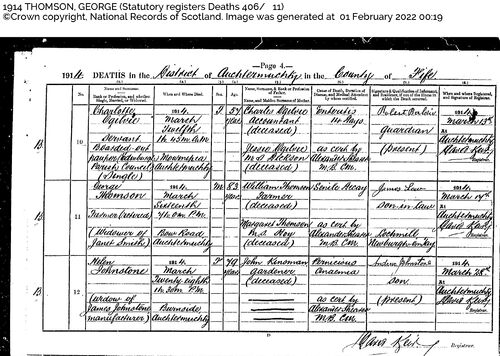 1914 THOMSON, GEORGE (Statutory registers Deaths 406/ 11)
©Crown copyright, National Records of Scotland. Image was generated at 01 February 2022 00:19
—Page 4.—
1914 DEATHS in the District of Auchtermuchty in the County of Fife
No.
Name and Surname.
Rank or Profession, and whether Single, Married, or Widowed.
When and Where Died.
Sex.
Age.
Name, Surname, & Rank or Profession of Father.
Name, and Maiden Surname of Mother.
Cause of Death, Duration of Disease, and Medical Attendant by whom certified.
Signature & Qualification of Informant, and Residence, if out of the House in which the Death occurred.
When and where Registered, and Signature of Registrar.
10
Charlotte
Ogilvie
Servant
Boarded-out
pauper (Edinburgh
Parish Council)
(Single)
1914
March
Twelfth
1h. 45m. A.M.
Auchtermuchty
F
54
years
Charles Ogilvie
Accountant
(deceased)
Jessie Ogilvie
M.S. Dickson
(deceased)
Enteritis
14 days
as cert by
Alexander Shearer
M.B. C.M.
guardian
(present)
1914
March 13th
At
Auchtermuchty
David Reid
Registrar.
11
George
Thomson
(retired)
(Widower of
Janet Smith)
1914
March
Sixteenth
P.M.
Bow Road
Auchtermuchty
M
83
years
William Thomson
Farmer
(deceased)
Margaret Thomson
M.S. Hoy
(deceased)
Senile Decay
as cert by
Alexander Shearer
M.B. C.M.
James Law
son-in-law
Lochmill
Newburgh-on-Tay
1914
March 17th
At
Auchtermuchty
David Reid
Registrar.
12
Helen
Johnstone
(widow of
James Johnstone
manufacturer)
1914
March
Twenty eighth
1h. 30m. P.M.
Burnside
Auchtermuchty
F
79
years
John Kinsman
gardener
(deceased)
Pernicious
Anaemia
as cert by
Alexander Shearer
M.B. C.M.
Andrew Johnstone
son
(present)
1914
March 28th
At
Auchtermuchty
David Reid
Registrar.
David Reid Registrar.